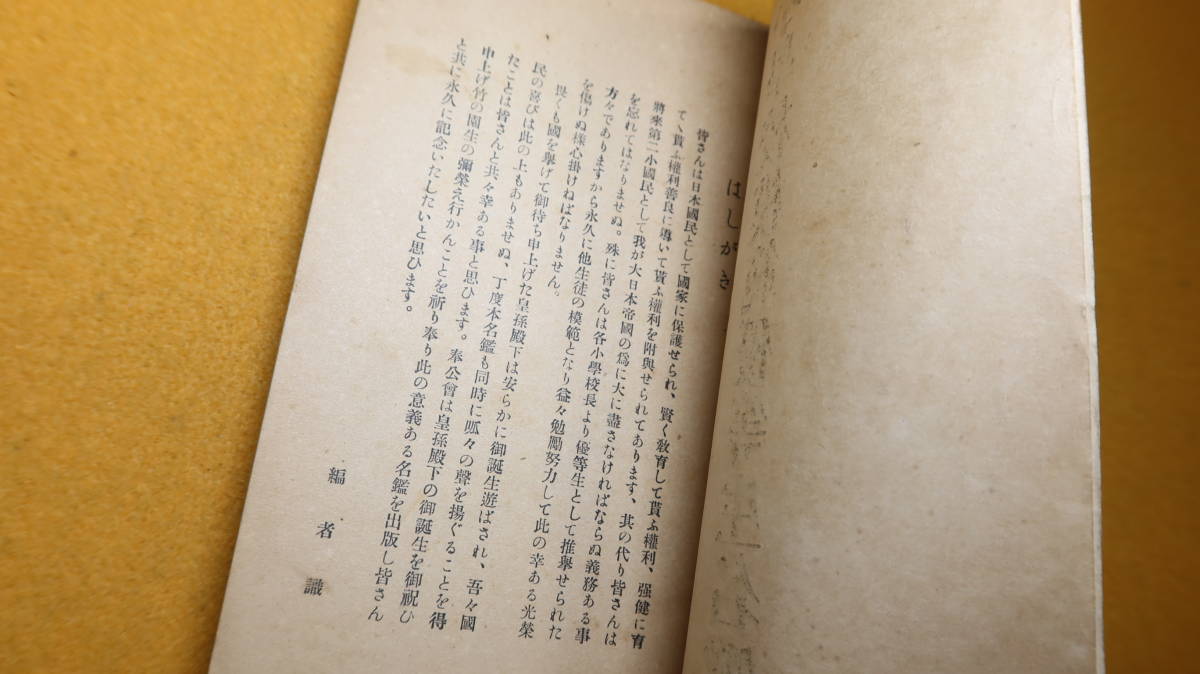 はしがき
皆さんは日本國民として國家に保護せられ、賢く敎育して貰ふ權利、强健に育
てゝ貰ふ權利善良に導いて貰ふ權利を附與せられてあります、其の代り皆さんは
將來第二小國民として我が大日本帝國の爲に大に盡さなければならぬ義務ある事
を忘れてはなりませぬ。殊に皆さんは各小學校長より優等生として推擧せられた
方々でありますから永久に他生徒の模範となり益々勉勵努力して此の幸ある光榮
を傷けぬ樣心掛けねばなりません。
畏くも國を擧げて御待ち申上げた皇孫殿下は安らかに御誕生遊ばされ、吾々國
民の喜びは此の上もありませぬ、丁度本名鑑も同時に呱々の聲を揚ぐることを得
たことは皆さんと共々幸ある事と思ひます。奉公會は皇孫殿下の御誕生を御祝ひ
申上げ竹の園生の彌榮え行かんことを祈り奉り此の意義ある名鑑を出版し皆さん
と共に永久に記念いたしたいと思ひます。
編者識